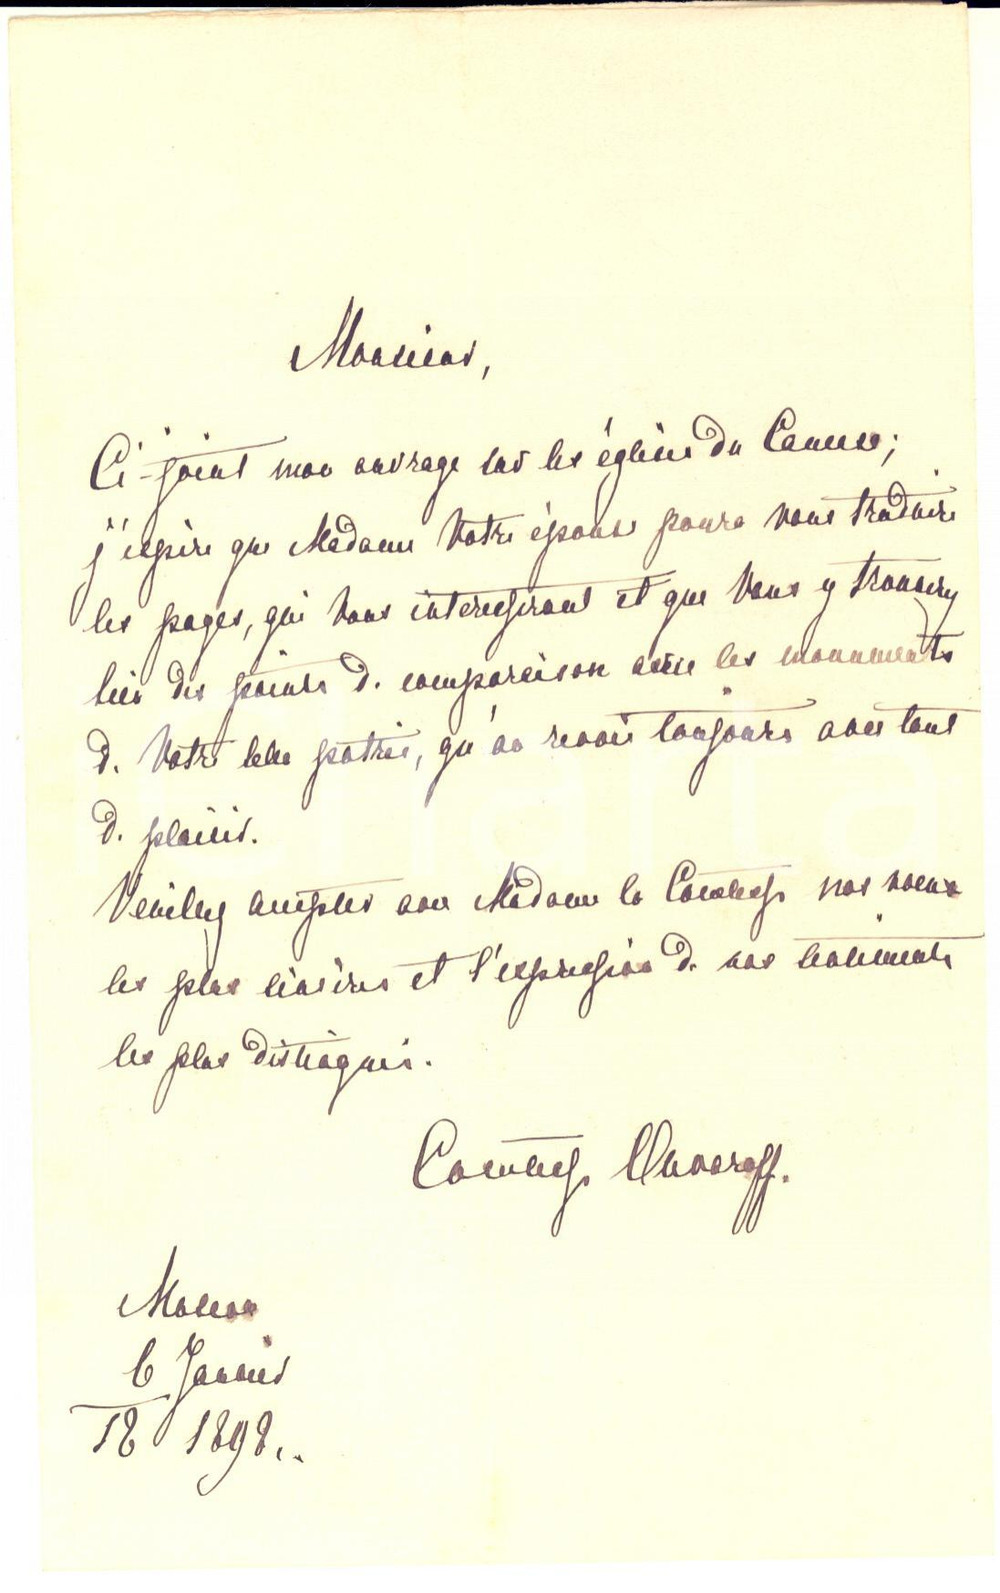 Monsieur,
Ci-joint mon ouvrage sur les églises du Caucase;
j'espère que Madame Votre épouse pourra vous traduire
les pages, qui Vous interesseront et que Vous y trouverez
bien des points de comparaison avec les monuments
de Votre belle patrie, qu'on revoit toujours avec tant
de plaisir.
Veuillez accepter avec Madame la Comtesse nos voeux
les plus sincères et l'expression de nos sentiments
les plus distingués.
Comtesse Ouvaroff.
Moscou
6 Janvier
18 1898.